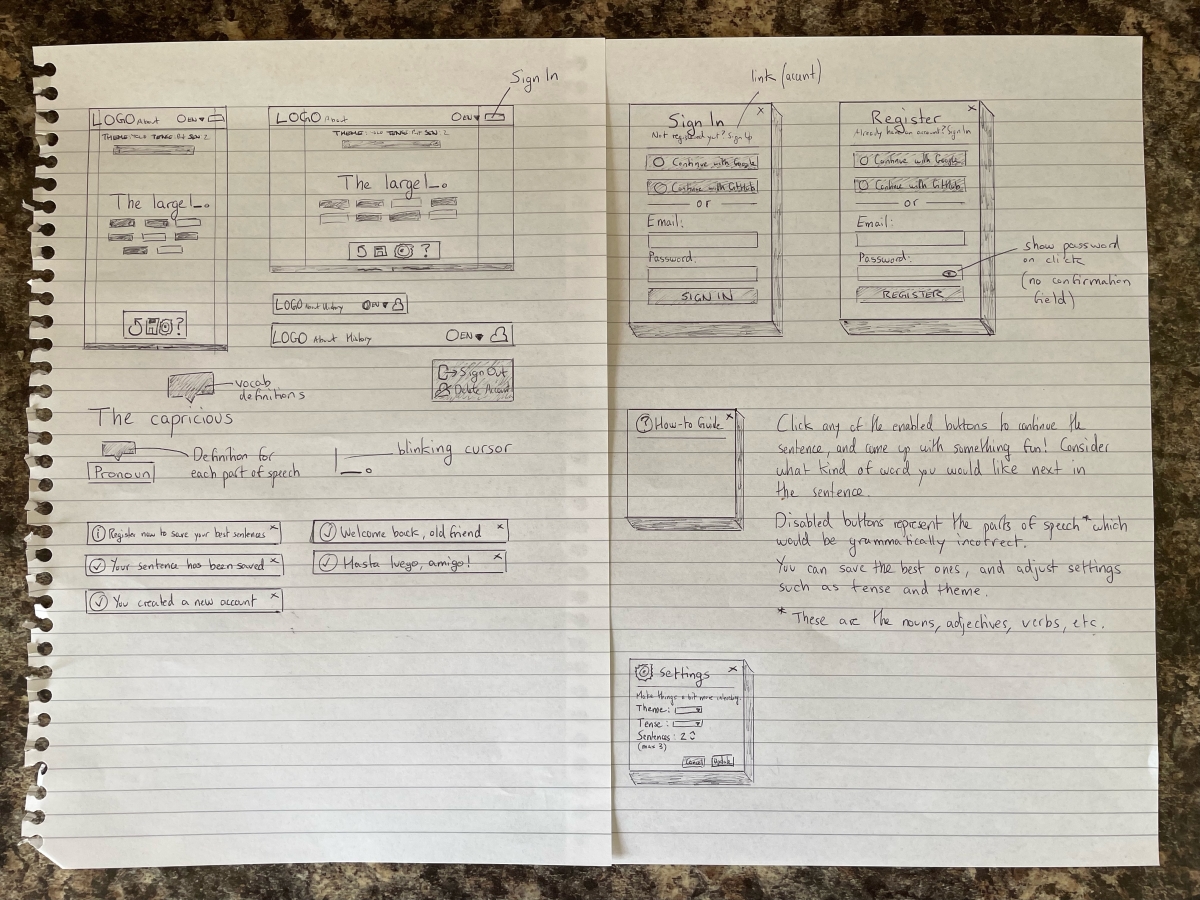 Sign In
LOGO About
EN
THEME: OLD TENSE: PST SEN: 2
The large _.
?
LOGO About
EN
THEME: OLD TENSE: PST SEN: 2
The large _.
?
LOGO About History
EN
LOGO About History
EN
Sign Out
Delete Account
vocab
definitions
The capricious
Pronoun
Definition for
each part of speech
blinking cursor
_.
i Register now to save your best sentences x
Your sentence has been saved x
You created a new account x
Welcome back, old friend x
Hasta luego, amigo! x
link (acunt)
Sign In x
Not registered yet? Sign Up
Continue with Google
Continue with GitHub
or
Email:
Password:
SIGN IN
Register x
Already have an account? Sign In
Continue with Google
Continue with GitHub
or
Email:
Password:
REGISTER
show password
on click
(no confirmation
field)
? How-to Guide x
Click any of the enabled buttons to continue the
sentence, and come up with something fun! Consider
what kind of word you would like next in
the sentence.
Disabled buttons represent the parts of speech* which
would be grammatically incorrect.
You can save the best ones, and adjust settings
such as tense and theme.
* These are the nouns, adjectives, verbs, etc.
Settings x
Make things a bit more interesting.
Theme:
Tense:
Sentences: 2
(max 3)
Cancel Update